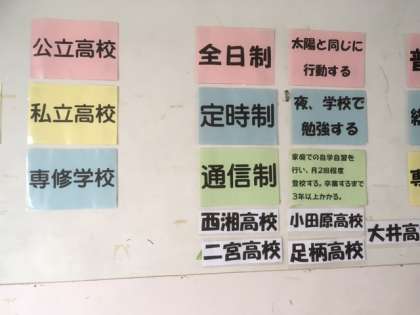 公立高校
全日制
太陽と同じに
行動する
私立高校
定時制
夜、学校で
勉強する
専修学校
通信制
家庭での自学自習を
行い、月2回程度
登校する。卒業するまで
3年以上かかる。
西湘高校
小田原高校
大井高
二宮高校
足柄高校